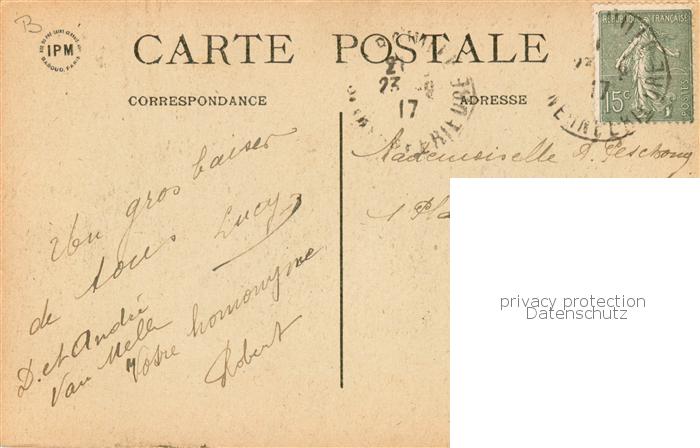 B
IPM
BABOUD, PARIS
CARTE POSTALE
CORRESPONDANCE
ADRESSE
REPUBLIQUE FRANÇAISE
15c
POSTES
23
17
17
Mademoiselle
1 Pla
Un gros baiser
de tous Lucy
D. et André
Van Melle
Votre homonyme
Robert
privacy protection
Datenschutz